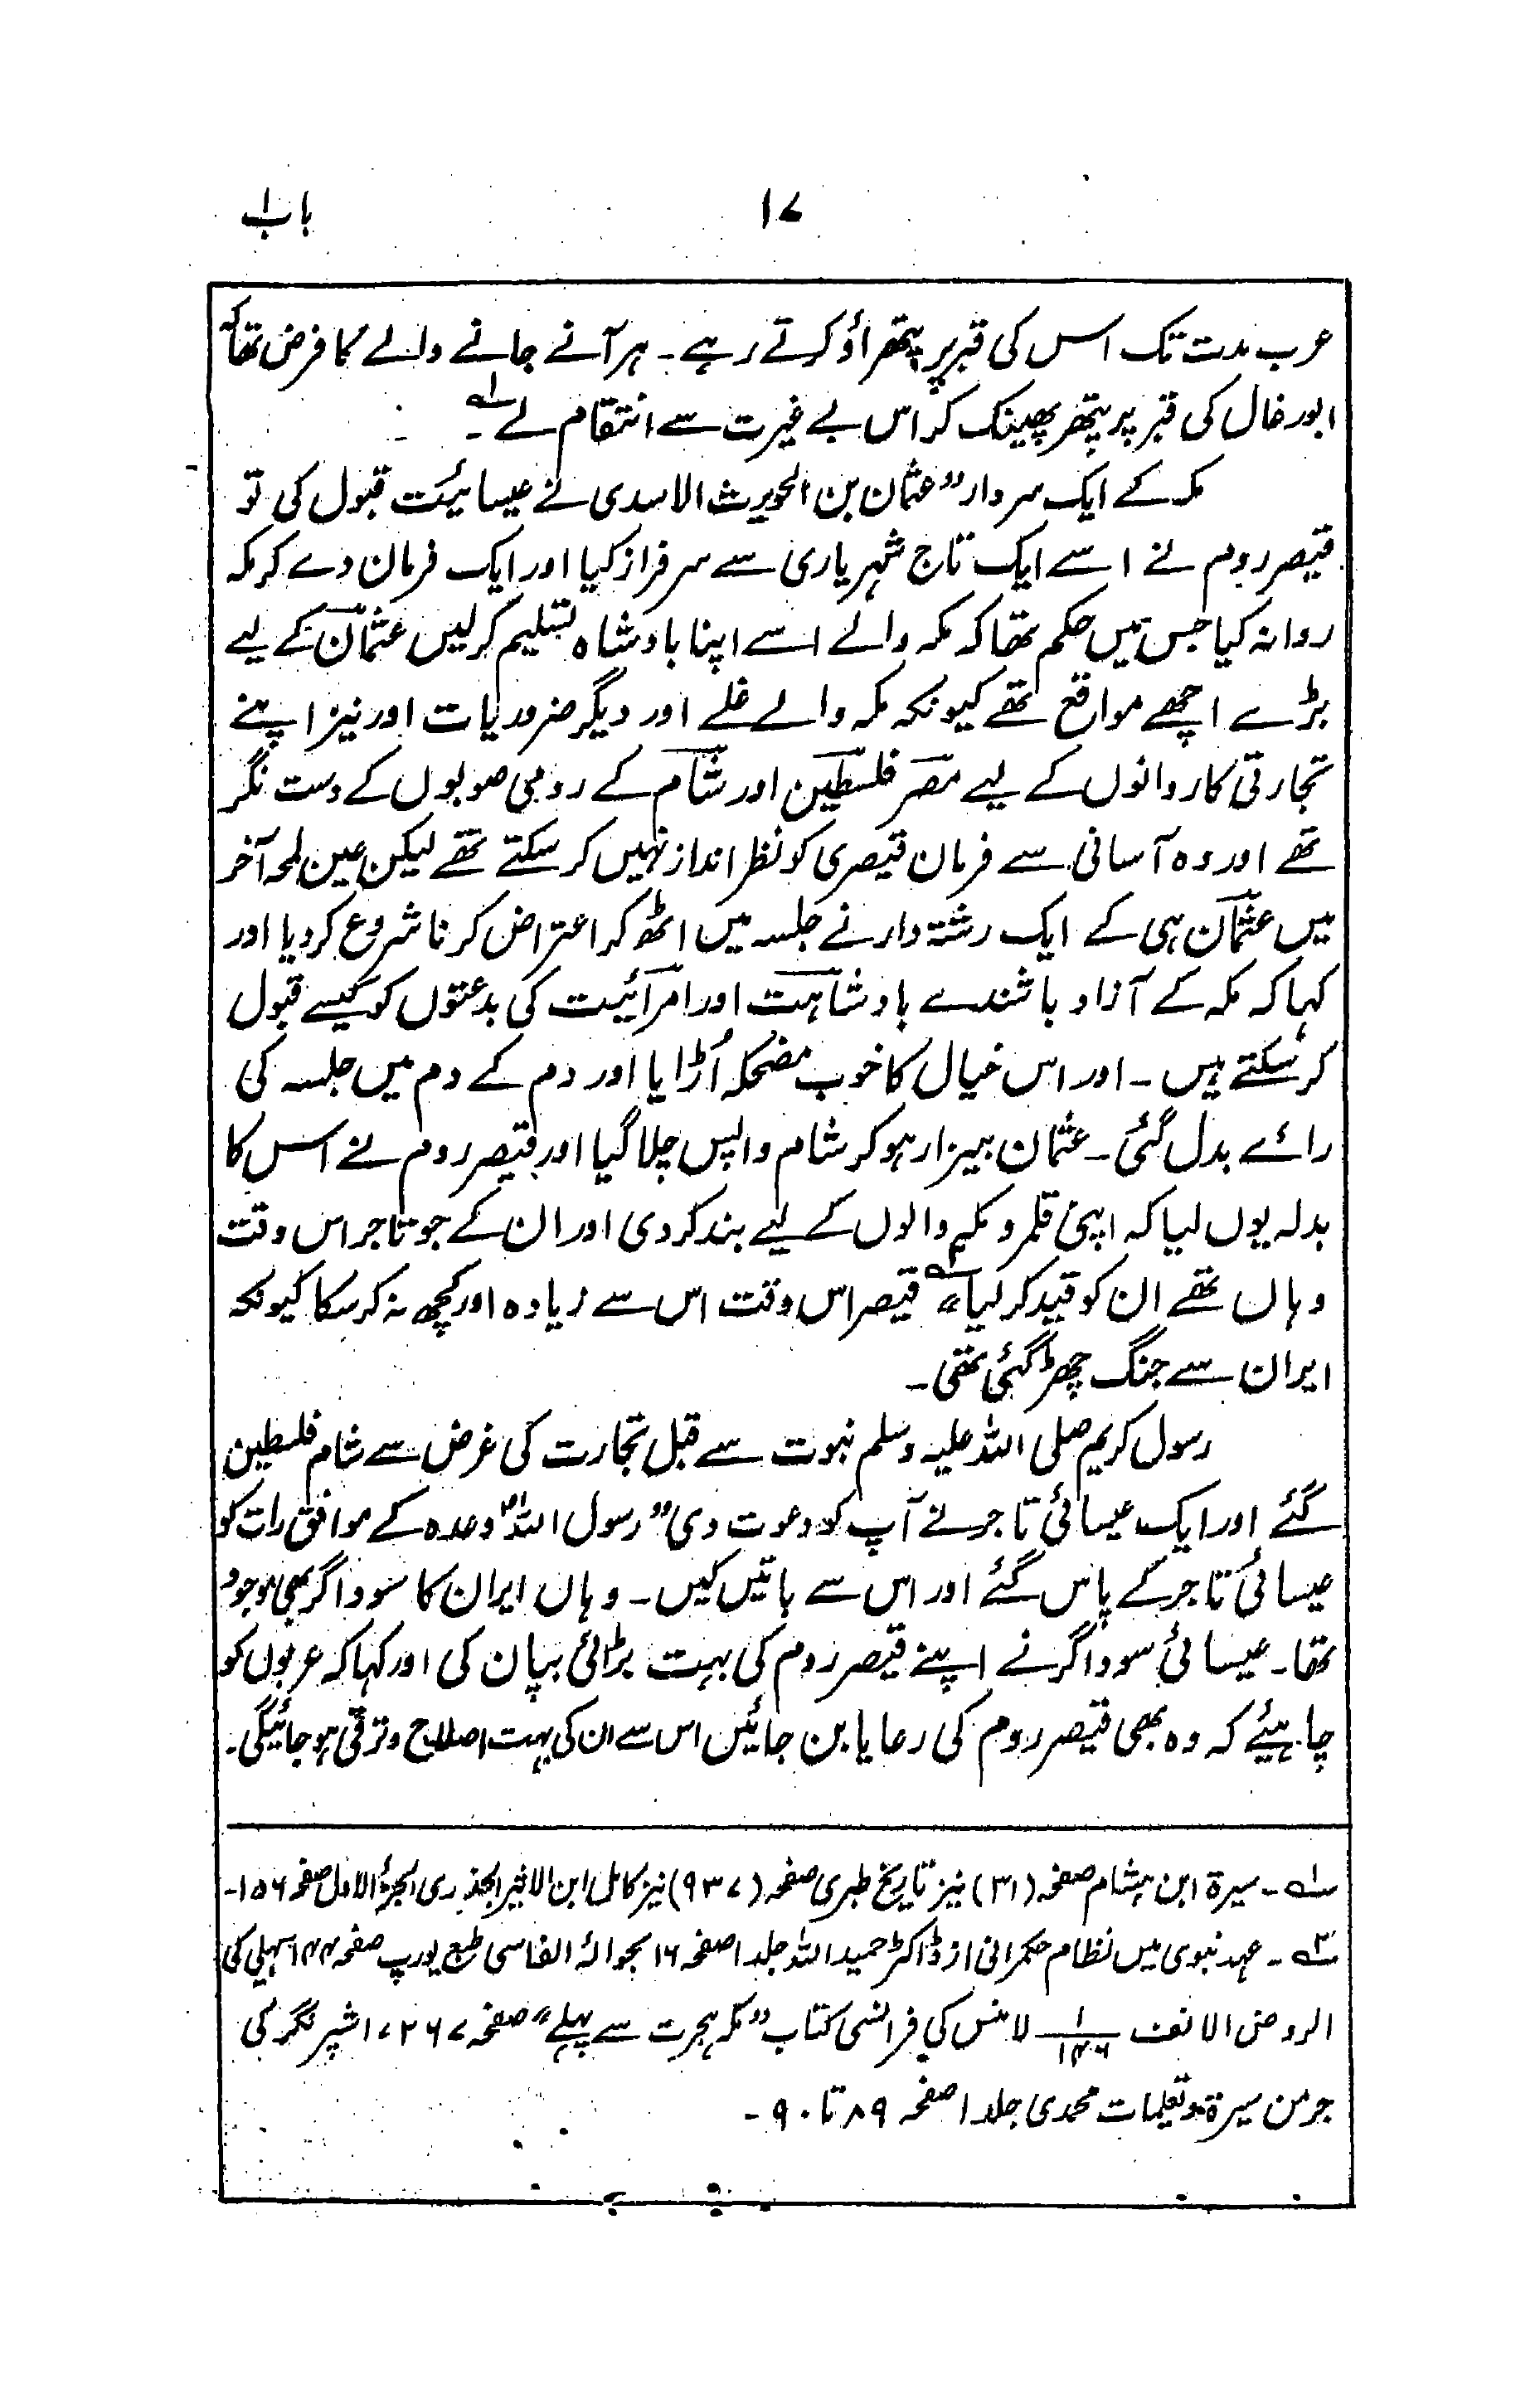 ۱۷ باب ۱
عرب مدت تک اس کی قبر پر پتھراؤ کرتے رہے۔ ہر آنے جانے والے کا فرض تھا کہ
ابو رغال کی قبر پر پتھر پھینک کر اس بے غیرت سے انتقام لے۔ لہ
مکہ کے ایک سردار ”عثمان بن الحویرث الاسدی نے عیسائیت قبول کی تو
قیصر روم نے اسے ایک تاج شہریاری سے سرفراز کیا اور ایک فرمان دے کر مکہ
روانہ کیا جس میں حکم تھا کہ مکہ والے اسے اپنا بادشاہ تسلیم کرلیں عثمان کے لیے
بڑے اچھے مواقع تھے کیونکہ مکہ والے غلے اور دیگر ضروریات اور نیز اپنے
تجارتی کاروانوں کے لیے مصر فلسطین اور شام کے رومی صوبوں کے دست نگر
تھے اور وہ آسانی سے فرمان قیصری کو نظر انداز نہیں کر سکتے تھے لیکن عین لمحہ آخر
میں عثمان ہی کے ایک رشتہ دار نے جلسہ میں اٹھ کر اعتراض کرنا شروع کر دیا اور
کہا کہ مکہ کے آزاد باشندے بادشاہت اور امرائیت کی بدعتوں کو کیسے قبول
کر سکتے ہیں۔ اور اس خیال کا خوب مضحکہ اُڑایا اور دم کے دم میں جلسہ کی
رائے بدل گئی۔ عثمان بیزار ہو کر شام واپس چلا گیا اور قیصر روم نے اس کا
بدلہ یوں لیا کہ اپنی قلمرو مکہ والوں کے لیے بند کردی اور ان کے جو تاجر اس وقت
وہاں تھے ان کو قید کر لیا“ قیصر اس وقت اس سے زیادہ اور کچھ نہ کر سکا کیونکہ
ایران سے جنگ چھڑ گئی تھی۔
رسول کریم صلی اللہ علیہ وسلم نبوت سے قبل تجارت کی غرض سے شام فلسطین
گئے اور ایک عیسائی تاجر نے آپ کو دعوت دی ”رسول اللہؐ وعدہ کے موافق رات کو
عیسائی تاجر کے پاس گئے اور اس سے باتیں کیں۔ وہاں ایران کا سوداگر بھی موجود
تھا۔ عیسائی سوداگر نے اپنے قیصر روم کی بہت بڑائی بیان کی اور کہا کہ عربوں کو
چاہیئے کہ وہ بھی قیصر روم کی رعایا بن جائیں اس سے ان کی بہت اصلاح و ترقی ہو جائیگی۔
لہ۔ سیرۃ ابن ہشام صفحہ (۳۱) نیز تاریخ طبری صفحہ (۹۳۷) نیز کامل ابن الاثیر الجذری الجزء الاول صفحہ ۱۵۶۔
۲ہ۔ عہد نبوی میں نظام حکمرانی از ڈاکٹر حمید اللہ جلد ۱ صفحہ ۱۶ بحوالہ الفاسی طبع یورپ صفحہ ۱۴۴ سہیلی کی
الروض الانف ۱/۱۴۶ لامنس کی فرانسی کتاب ”مکہ ہجرت سے پہلے“ صفحہ ۲۶۷، اشپرنگر کی
جرمن سیرۃ و تعلیمات محمدی جلد ۱ صفحہ ۸۹ تا ۹۰۔